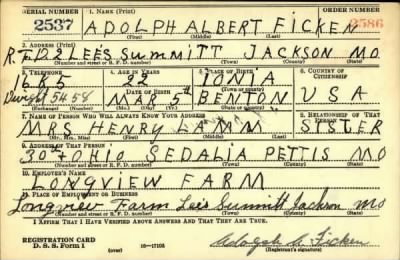 SERIAL NUMBER 1. NAME (Print) ORDER NUMBER
2537 ADOLPH ALBERT FICKEN 2586
(First) (Middle) (Last)
2. ADDRESS (Print)
R.F.D 2 LEE'S SUMMITT JACKSON MO
(Number and street or R. F. D. number) (Town) (County) (State)
3. TELEPHONE 4. AGE IN YEARS 5. PLACE OF BIRTH 6. COUNTRY OF CITIZENSHIP
22 IONIA
DATE OF BIRTH (Town or county)
Dwight 5458 MAY 5th BENTON USA
(Mo.) (Day) (Yr.) (State or country)
7. NAME OF PERSON WHO WILL ALWAYS KNOW YOUR ADDRESS 8. RELATIONSHIP OF THAT PERSON
MRS HENRY LAMM SISTER
(Mr., Mrs., Miss) (First) (Middle) (Last)
9. ADDRESS OF THAT PERSON
30 + OHIO SEDALIA PETTIS MO
(Number and street or R. F. D. number) (Town) (County) (State)
10. EMPLOYER'S NAME
LONGVIEW FARM
11. PLACE OF EMPLOYMENT OR BUSINESS
Longview Farm Lees Summitt Jackson MO
(Number and street or R. F. D. number) (Town) (County) (State)
I AFFIRM THAT I HAVE VERIFIED ABOVE ANSWERS AND THAT THEY ARE TRUE.
REGISTRATION CARD
D. S. S. Form 1 (over) 16—17105 Adolph A. Ficken
(Registrant's signature)